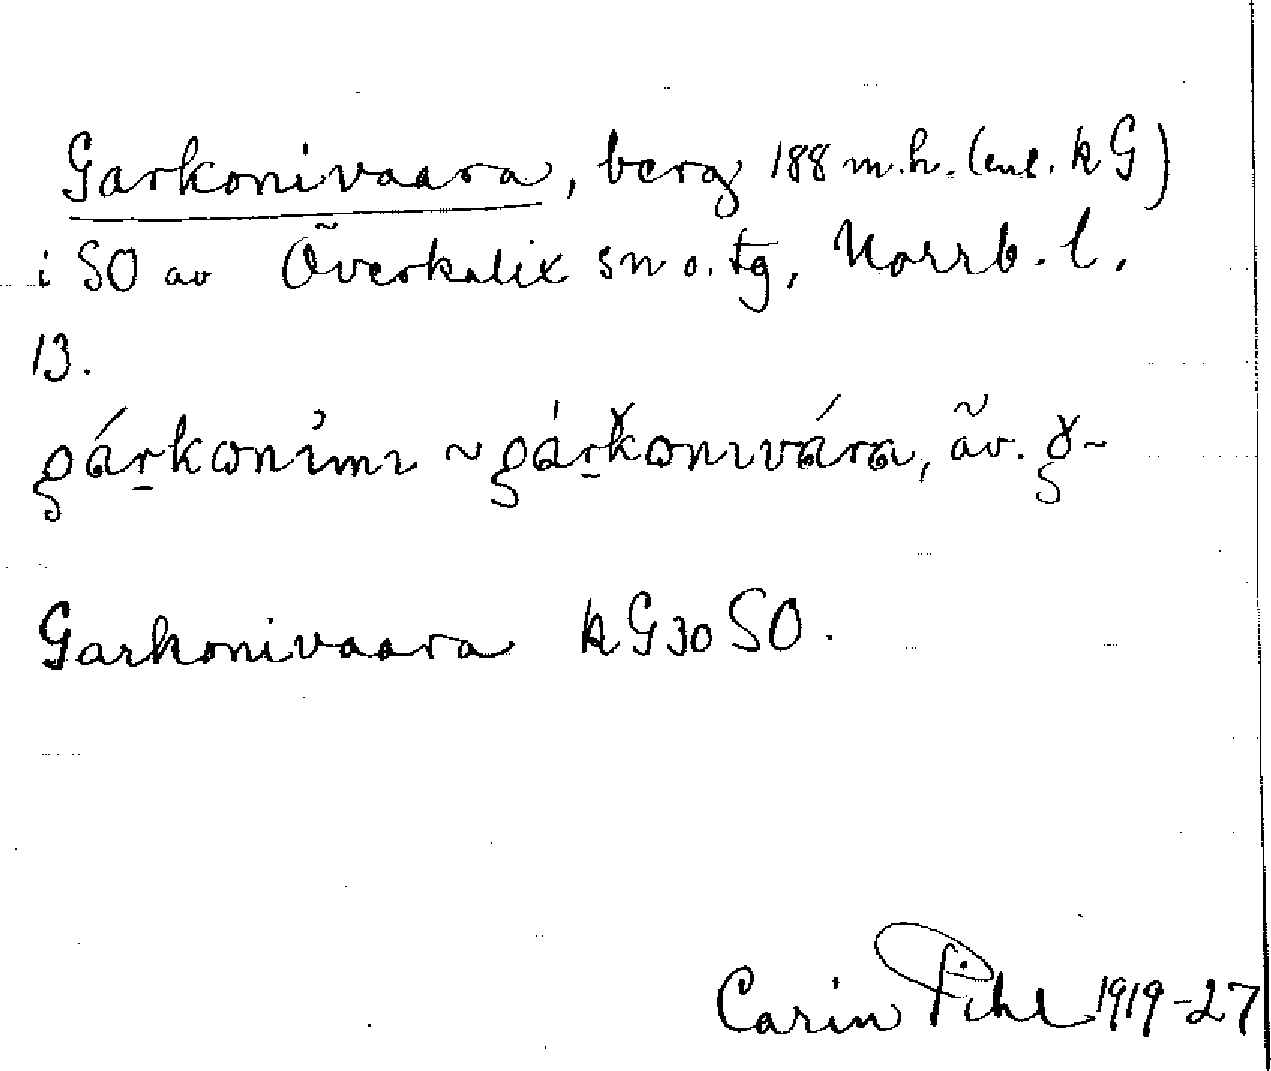 Garkonivaara, berg 188 m.h. (enl. kG)
i SO av Överkalix sn o. tg, Norrb. l.
13.
gárkonimi ~ gárkonivára, äv. g̣-
Garkonivaara kG 30 SO.
Carin Pihl 1919-27